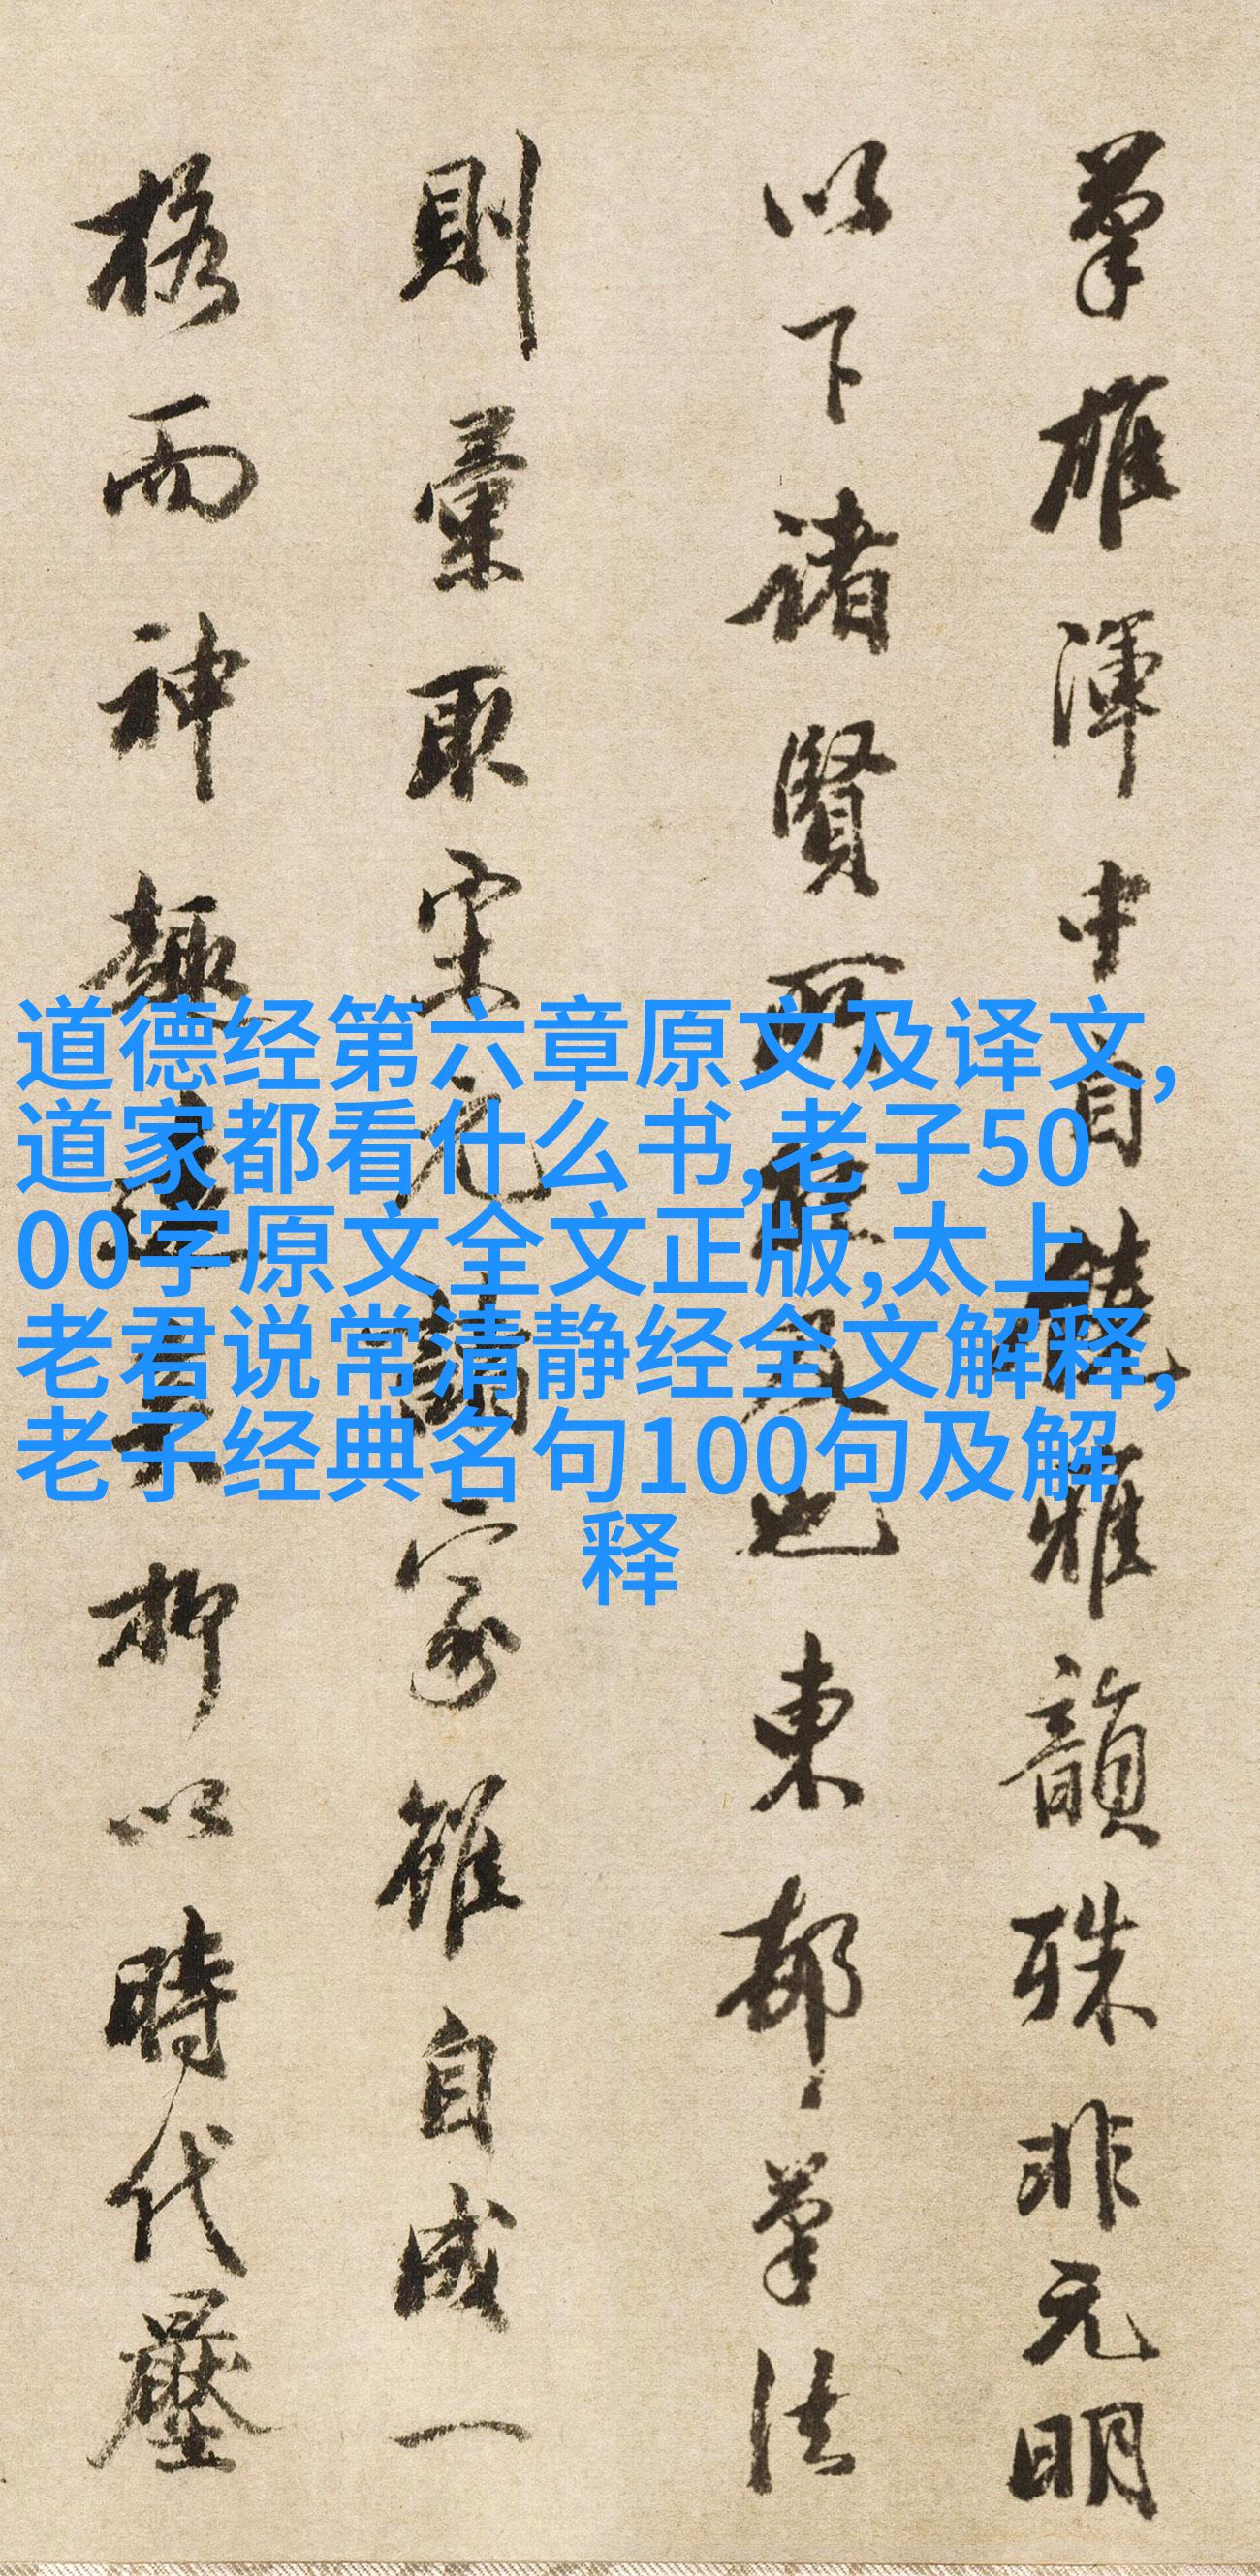 筆雄渾中自饒雅韻殊非元明
以下諸賢所能及也東邨筆法
則彙取宋元諸家雖自成一
格而神趣抑以時代壓
道德经第六章原文及译文,
道家都看什么书,老子50
00字原文全文正版,太上
老君说常清静经全文解释,
老子经典名句100句及解
释